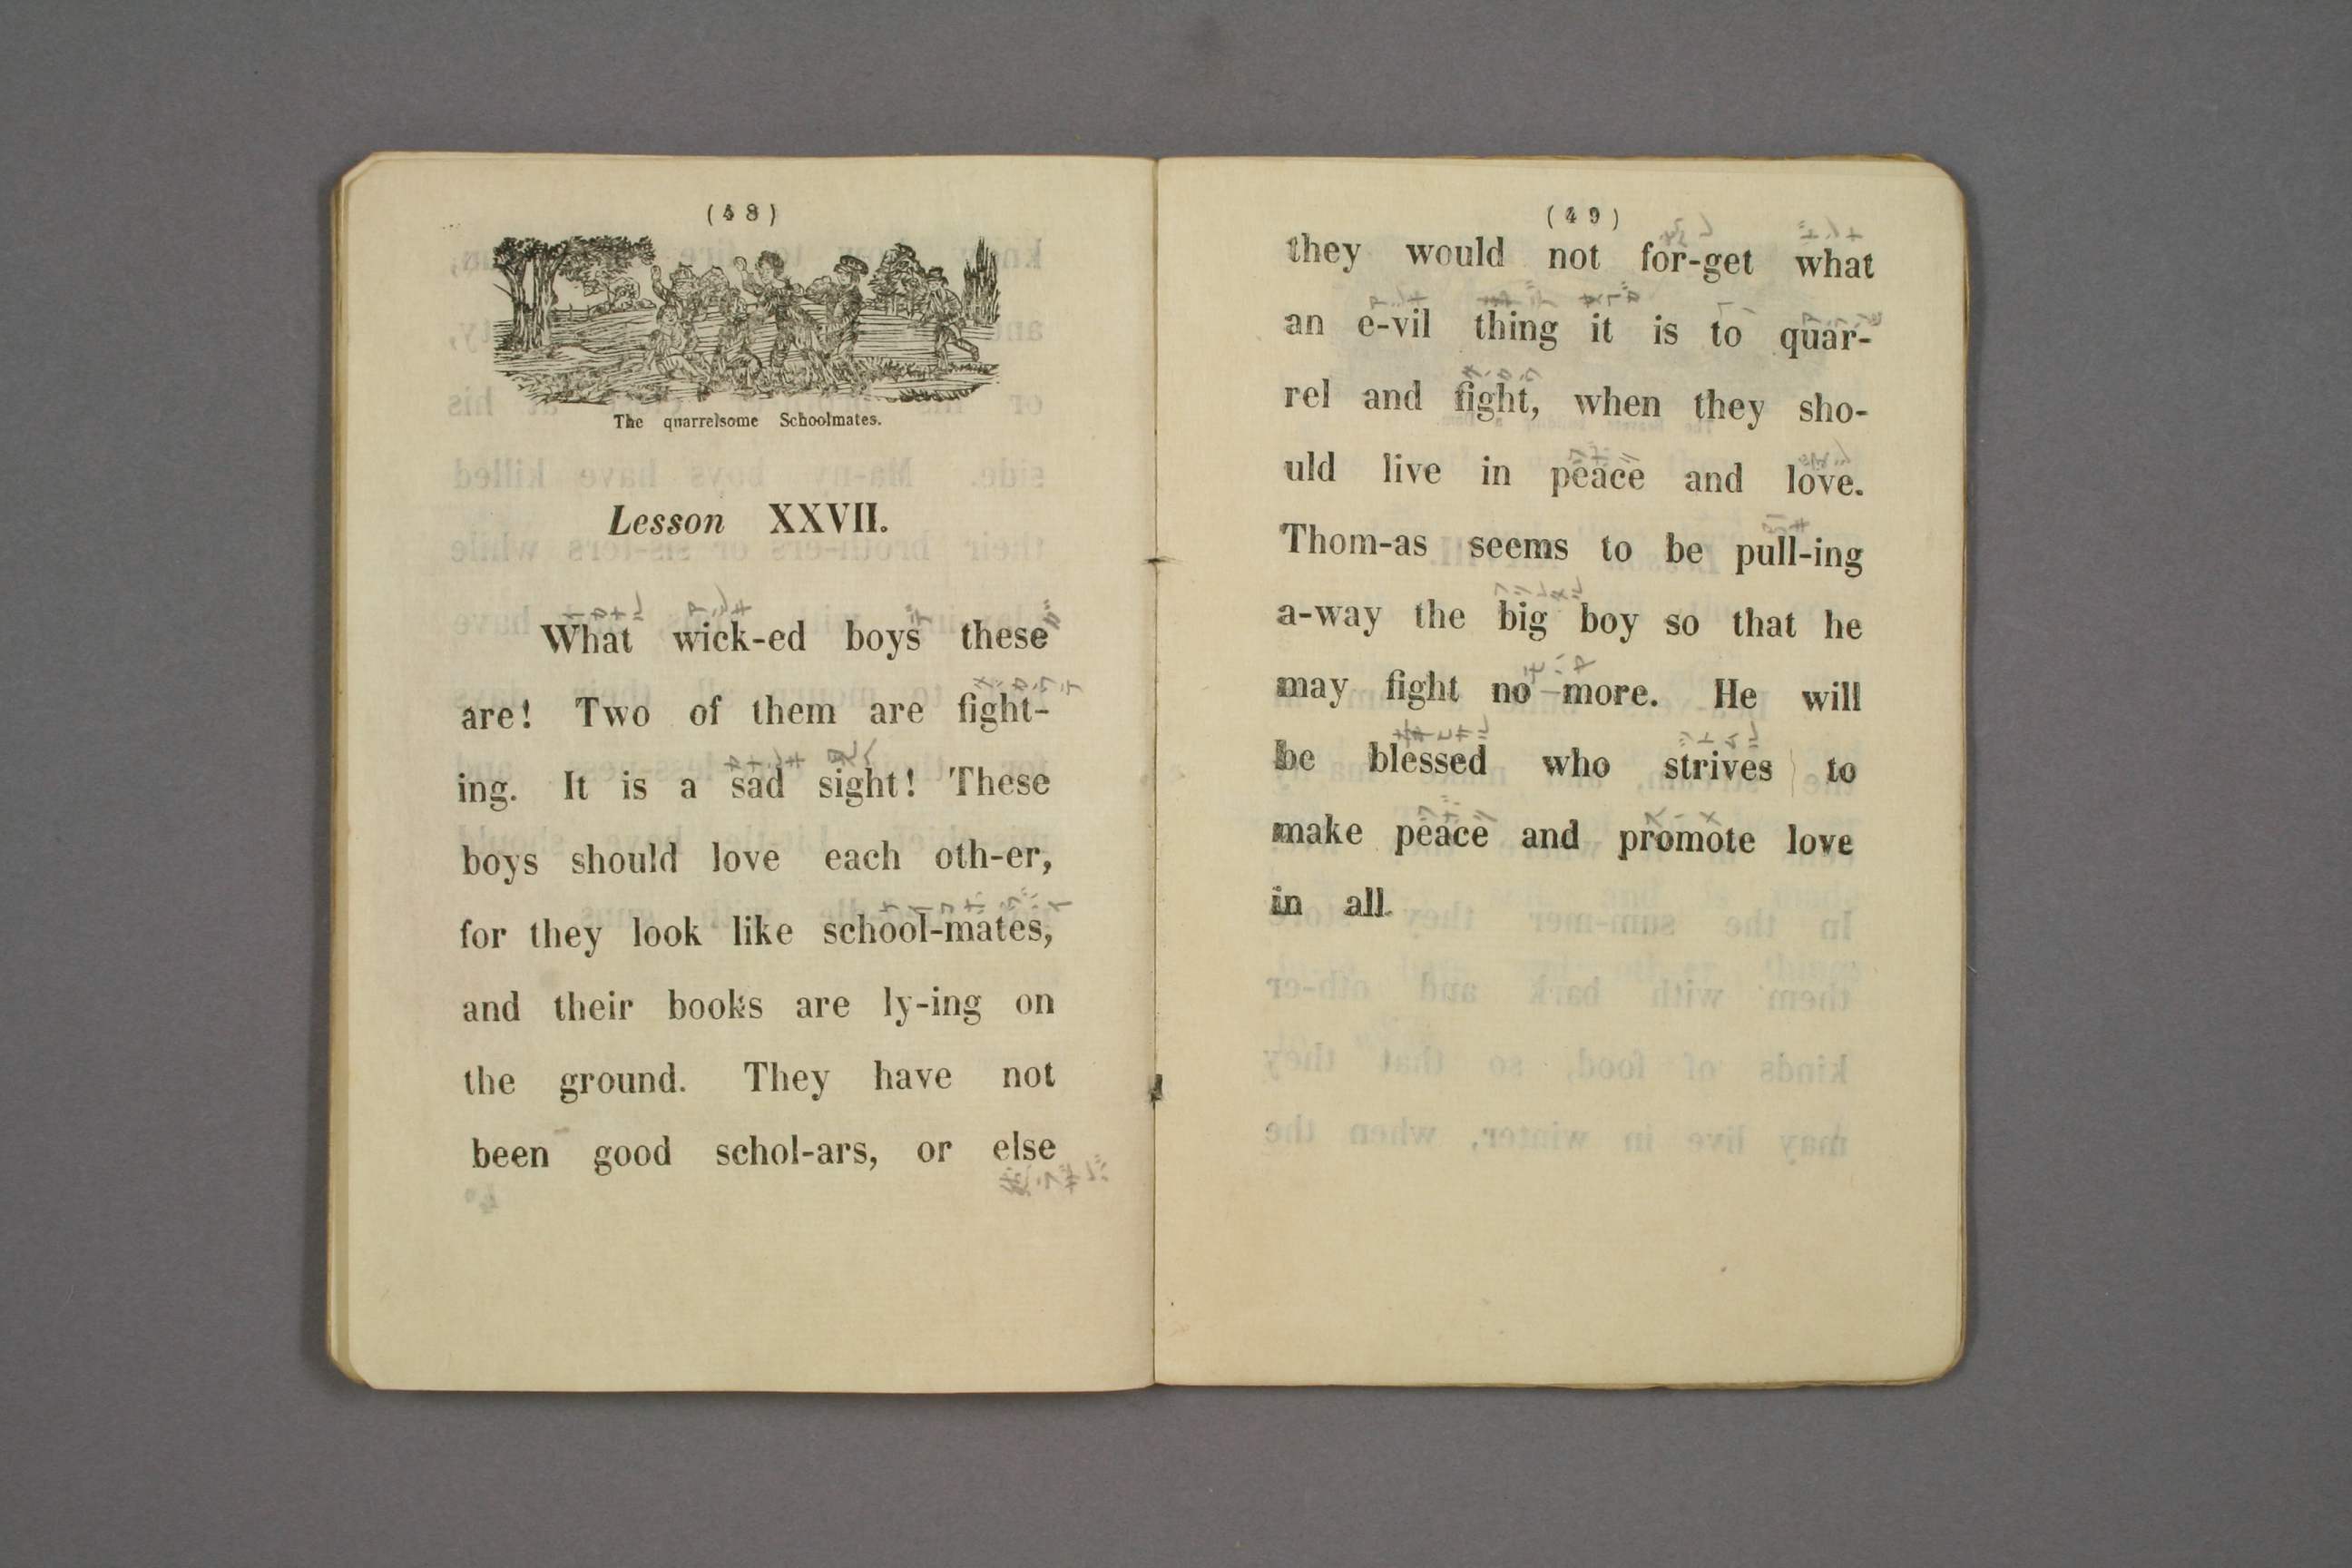 (48)
The quarrelsome Schoolmates.
Lesson XXVII.
What wick-ed boys these
are! Two of them are fight-
ing. It is a sad sight! These
boys should love each oth-er,
for they look like school-mates,
and their books are ly-ing on
the ground. They have not
been good schol-ars, or else
(49)
they would not for-get what
an e-vil thing it is to quar-
rel and fight, when they sho-
uld live in peace and love.
Thom-as seems to be pull-ing
a-way the big boy so that he
may fight no more. He will
be blessed who strives to
make peace and promote love
in all.